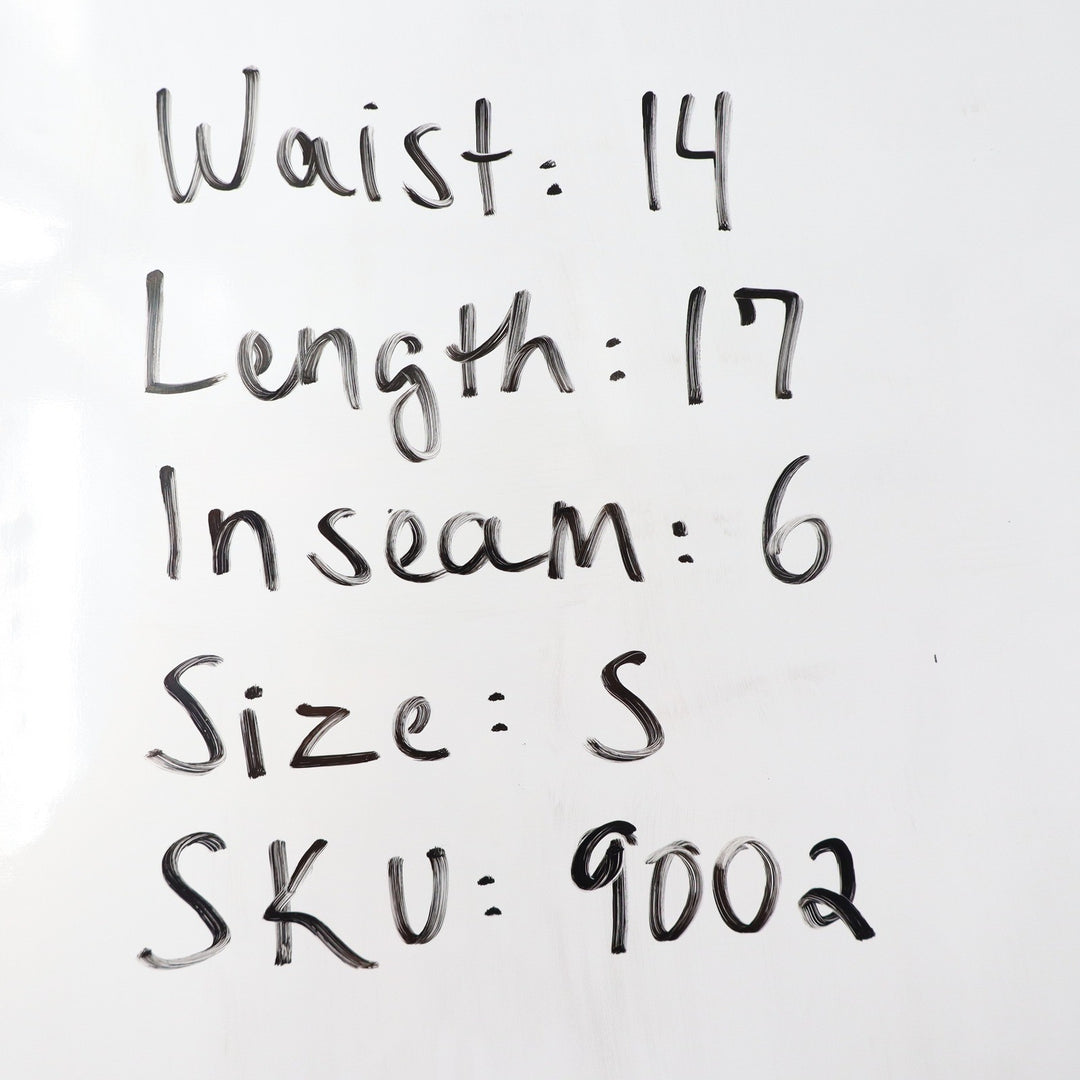 Waist: 14
Length: 17
Inseam: 6
Size: S
SKU: 9002